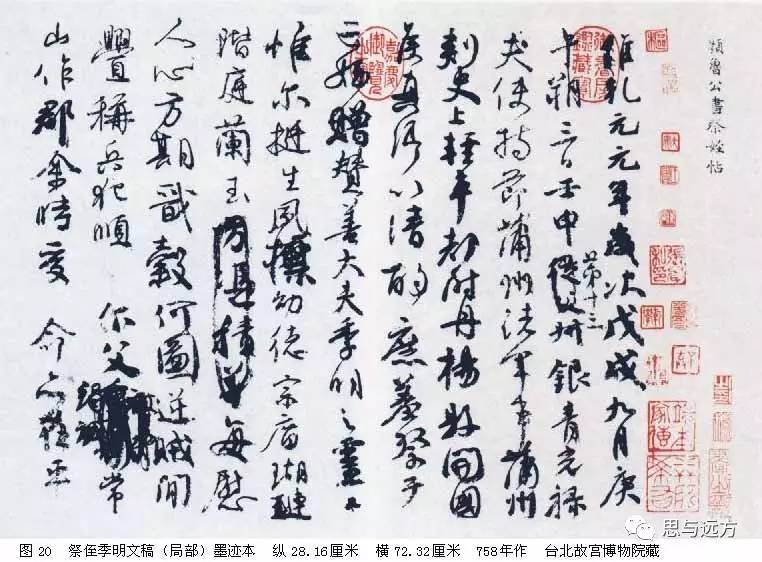 顏魯公書祭姪帖
維乾元元年歲次戊戌九月庚
午朔三日壬申第十三從父銀青光祿
夫使持節蒲州諸軍事蒲州
刺史上輕車都尉丹楊縣開國
侯真卿以清酌庶羞祭于
亡姪贈贊善大夫季明之靈曰
惟爾挺生夙標幼德宗廟瑚璉
階庭蘭玉方憑積善每慰
人心方期戩穀何圖逆賊閒
釁稱兵犯順 爾父竭誠常
山作郡余時受 命亦在平
思与远方
图 20 祭侄季明文稿（局部）墨迹本 纵 28.16 厘米 横 72.32 厘米 758年作 台北故宫博物院藏